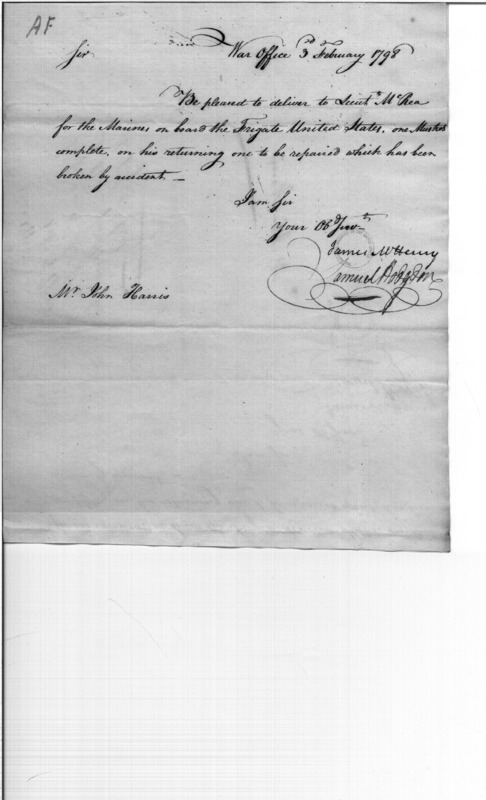 AF
War Office 3d February 1798
Sir
Be pleased to deliver to Lieut. McRea
for the Marines on board the Frigate United States, one Musket
complete, on his returning one to be repaired which has been
broken by accident. —
I am Sir
Your Obd Servt
James McHenry
Samuel Hodgdon
Mr. John Harris